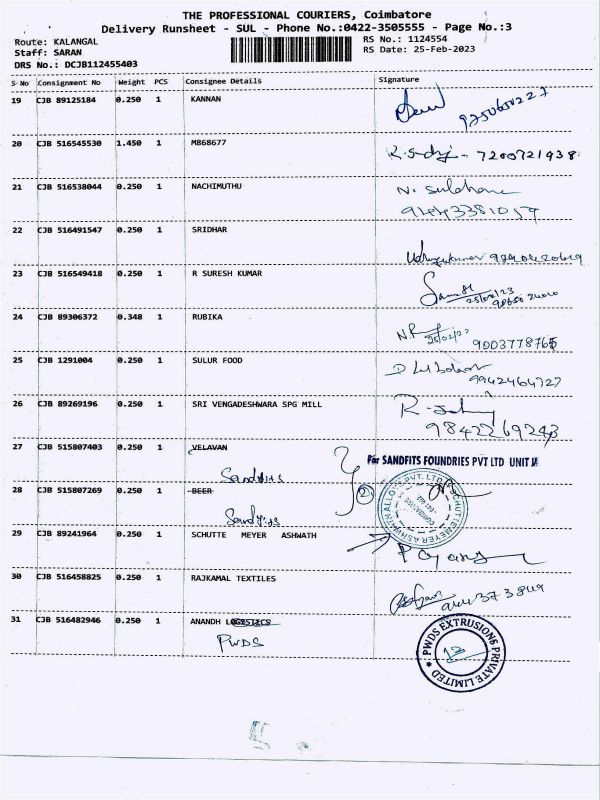 THE PROFESSIONAL COURIERS, Coimbatore
Delivery Runsheet - SUL - Phone No.:0422-3505555 - Page No.:3
Route: KALANGAL RS No.: 1124554
Staff: SARAN RS Date: 25-Feb-2023
DRS No.: DCJB112455403
S-No Consignment No Weight PCS Consignee Details Signature
19 CJB 89125184 0.250 1 KANNAN
20 CJB 516545530 1.450 1 M868677
7200721938
21 CJB 516538044 0.250 1 NACHIMUTHU
22 CJB 516491547 0.250 1 SRIDHAR
23 CJB 516549418 0.250 1 R SURESH KUMAR
25/02/23
24 CJB 89306372 0.348 1 RUBIKA
9003778765
25 CJB 1291004 0.250 1 SULUR FOOD
9942464727
26 CJB 89269196 0.250 1 SRI VENGADESHWARA SPG MILL
9842269243
27 CJB 515807403 0.250 1 VELAVAN For SANDFITS FOUNDRIES PVT LTD UNIT II
Sandfits
28 CJB 515807269 0.250 1 BEER
Sandfits
29 CJB 89241964 0.250 1 SCHUTTE MEYER ASHWATH
30 CJB 516458825 0.250 1 RAJKAMAL TEXTILES
31 CJB 516482946 0.250 1 ANANDH LOGISTICS
PWDS
PWDS EXTRUSIONS PRIVATE LIMITED